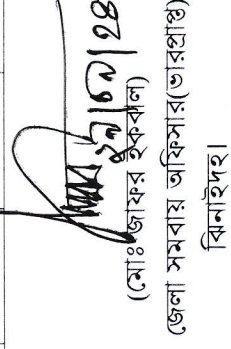 (মোঃ জাফর ইকবাল)
জেলা সমবায় অফিসার(ভারপ্রাপ্ত)
ঝিনাইদহ।